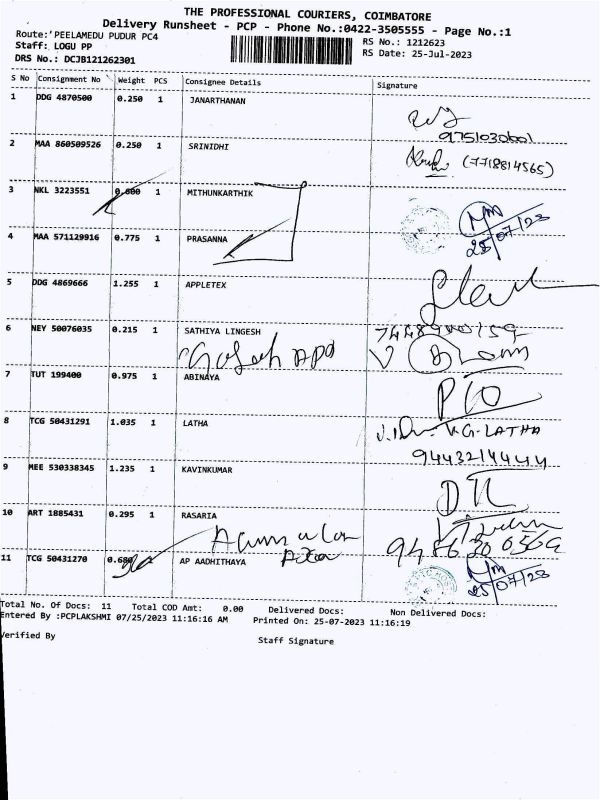 THE PROFESSIONAL COURIERS, COIMBATORE
Delivery Runsheet - PCP - Phone No.:0422-3505555 - Page No.:1
Route:'PEELAMEDU PUDUR PC4
Staff: LOGU PP
DRS No.: DCJB121262301
RS No.: 1212623
RS Date: 25-Jul-2023
S No Consignment No Weight PCS Consignee Details Signature
1 DDG 4870500 0.250 1 JANARTHANAN
9751030601
2 MAA 860509526 0.250 1 SRINIDHI (7718814565)
3 NKL 3223551 0.800 1 MITHUNKARTHIK
25/07/23
4 MAA 571129916 0.775 1 PRASANNA
5 DDG 4869666 1.255 1 APPLETEX
6 NEY 50076035 0.215 1 SATHIYA LINGESH
7 TUT 199400 0.975 1 ABINAYA
8 TCG 50431291 1.035 1 LATHA
V.G-LATHA
9443214444
9 MEE 530338345 1.235 1 KAVINKUMAR
10 ART 1885431 0.295 1 RASARIA
11 TCG 50431270 0.680 AP AADHITHAYA
25/07/23
Total No. Of Docs: 11 Total COD Amt: 0.00 Delivered Docs: Non Delivered Docs:
Entered By :PCPLAKSHMI 07/25/2023 11:16:16 AM Printed On: 25-07-2023 11:16:19
Verified By Staff Signature